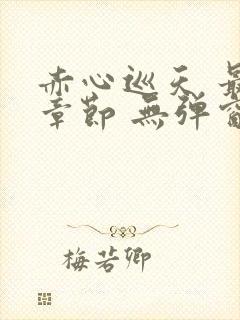 赤心巡天 最
章節 無彈窗
梅若卿